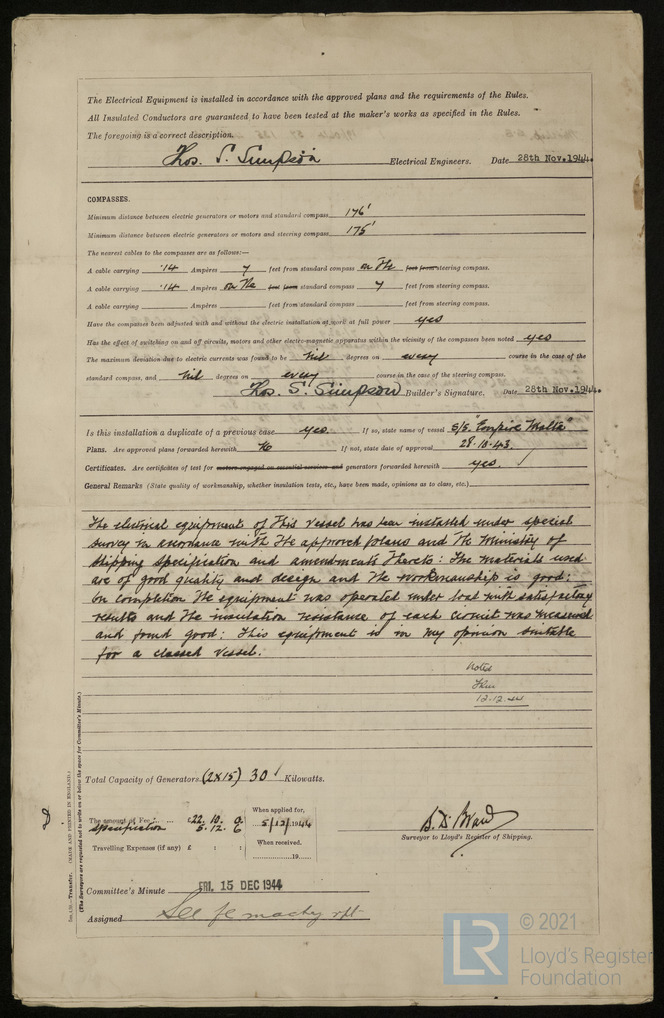 The Electrical Equipment is installed in accordance with the approved plans and the requirements of the Rules.
All Insulated Conductors are guaranteed to have been tested at the maker's works as specified in the Rules.
The foregoing is a correct description.
Thos. S. Simpson Electrical Engineers. Date 28th Nov. 1944.
COMPASSES.
Minimum distance between electric generators or motors and standard compass 176'
Minimum distance between electric generators or motors and steering compass 175'
The nearest cables to the compasses are as follows:—
A cable carrying .14 Ampères 7 feet from standard compass on the feet from steering compass.
A cable carrying .14 Ampères on the feet from standard compass 7 feet from steering compass.
A cable carrying Ampères feet from standard compass feet from steering compass.
Have the compasses been adjusted with and without the electric installation at work at full power yes
Has the effect of switching on and off circuits, motors and other electro-magnetic apparatus within the vicinity of the compasses been noted yes
The maximum deviation due to electric currents was found to be Nil degrees on every course in the case of the
standard compass, and Nil degrees on every course in the case of the steering compass.
Thos. S. Simpson Builder's Signature. Date 28th Nov. 1944.
Is this installation a duplicate of a previous case yes. If so, state name of vessel S/S. "Empire Malta"
Plans. Are approved plans forwarded herewith No If not, state date of approval 28.10.43.
Certificates. Are certificates of test for motors engaged on essential services and generators forwarded herewith yes.
General Remarks (State quality of workmanship, whether insulation tests, etc., have been made, opinions as to class, etc.)
The electrical equipment of this vessel has been installed under special
survey in accordance with the approved plans and the Ministry of
Shipping Specification and amendments thereto: The materials used
are of good quality and design and the workmanship is good:
On completion the equipment was operated under load with satisfactory
results and the insulation resistance of each circuit was measured
and found good: This equipment is in my opinion suitable
for a classed vessel.
Noted
12.12.44
Total Capacity of Generators (2x15) 30 Kilowatts.
The amount of Fee ... ... £22. 10. 0. When applied for,
Specification 5. 12. 6 5/12/1944
Travelling Expenses (if any) £ : : When received.
19
B. D. Ward
Surveyor to Lloyd's Register of Shipping.
Committee's Minute FRI. 15 DEC 1944
Assigned See fe machy rpt
Transfer. (MADE AND PRINTED IN ENGLAND.)
(The Surveyors are requested not to write on or below the space for Committee's Minute.)
LR
© 2021
Lloyd's Register
Foundation